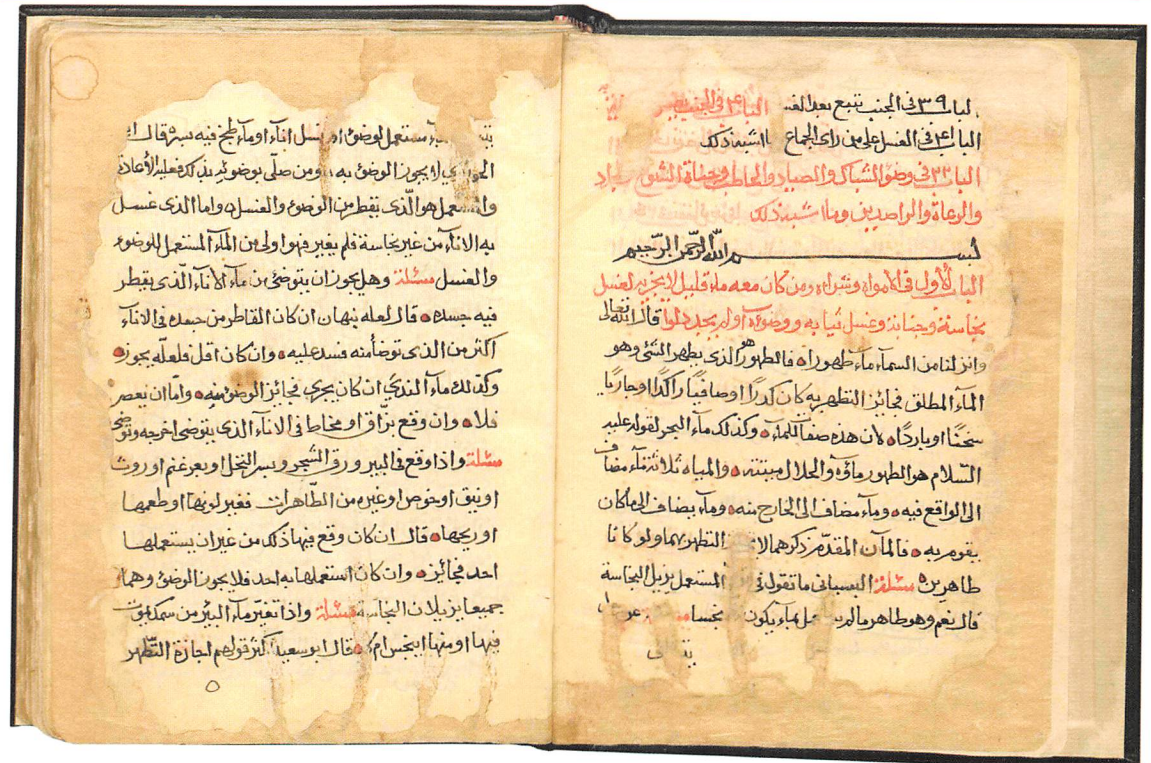 الباب ٣٩ في الجنب تتبع بعد الغسل الباب ٤٠ في الجنب
الباب ٤١ في الغسل على من رأى الجماع وما اشبه ذلك
الباب ٤٢ في وضوء الشباك والصياد والحاطب
والرعاة والراصدين وما اشبه ذلك
بسم الله الرحمن الرحيم
الباب الأول في الامواه وشراءه ومن كان معه ماء قليل لا يجزيه لغسل
نجاسة وجنابة وغسل ثيابه ووضوءه او لم يجد دلوا قال الله تعالى
وانزلنا من السمآء مآء طهورا فالطهور هو الذي يطهر الشئ وهو
المآء المطلق فجائز التطهر به كان كدرًا او صافيًا راكدًا او جاريًا
سخنًا او باردًا لان هذه صفات للمآء وكذلك مآء البحر لقوله عليه
السّلام هو الطهور مآؤه والحلال ميتته والمياه ثلاثة مآء مضاف
الى الواقع فيه ومآء مضاف الى الخارج منه ومآء يضاف الى ما كان
يقوم به فالمآن المقدّم ذكرهما التطهر بهما ولو كانا
طاهرين مسئلة ما تقول في المستعمل يزيل النجاسة
قال نعم وهو طاهر ما لم بماء يكون نجسا
مآء مستعمل لوضوء او غسل انآء او مآء طبخ فيه سئر قال
لا يجوز الوضوء به ومن صلّى بوضوئه بذلك فعليه الأعادة
والمستعمل هو الّذي يقطر من الوضوء والغسل واما الذى غسل
به الانآء من غير نجاسة فلم يغير فهو اولى من المآء المستعمل للوضوء
والغسل مسئلة وهل يجوز ان يتوضئ من مآء الانآء الّذي يقطر
فيه جسده قال لعله نبهان ان كان القاطر من جسده في الانآء
اكثر من الذى توضأ منه فسد عليه وان كان اقل فلعلّه يجوز
وكذلك مآء الندي ان كان يجري فجائز الوضوء منه وامّا ان يعصر
فلا وان وقع بزاق او مخاط في الانآء الذي يتوضى اخرجه وتوضى
مسئلة واذا وقع في البير ورق الشجر وبسر النخل او بعر غنم او روث
او خوص او غيره من الطّاهرات فغير لونها او طعمها
او ريحها قال ان كان وقع فيها ذلك من غير ان يستعملها
احد فجائز وان كان استعملها به احد فلا يجوز الوضوء وهما
جميعا يزيلان النجاسة مسئلة واذا تغيّر مآء البئر من سمك يموت
فيها او منها اينجس ام لا قال ابو سعيد اكثر قولهم اجازة التّطهر